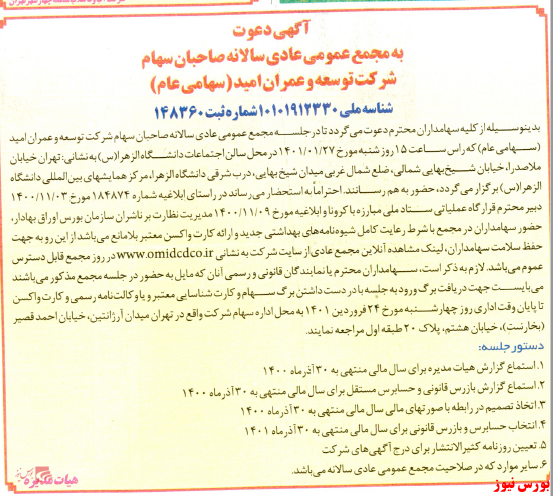 آگهی دعوت
به مجمع عمومی عادی سالانه صاحبان سهام
شرکت توسعه و عمران امید (سهامی عام)
شناسه ملی ۱۰۱۰۱۹۱۲۳۳۰ شماره ثبت ۱۴۸۳۶۰
بدینوسیله از کلیه سهامداران محترم دعوت می گردد تا در جلسه مجمع عمومی عادی سالانه صاحبان سهام شرکت توسعه و عمران امید
(سهامی عام) که راس ساعت ۱۵ روز شنبه مورخ ۱۴۰۱/۰۱/۲۷ در محل سالن اجتماعات دانشگاه الزهرا(س) به نشانی: تهران خیابان
ملاصدرا، خیابان شیخ‌بهایی شمالی، ضلع شمال غربی میدان شیخ بهایی، درب شرقی دانشگاه الزهرا، مرکز همایشهای بین المللی دانشگاه
الزهرا(س) برگزار می گردد، حضور به هم رسانند. احتراماً به استحضار می رساند در راستای ابلاغیه شماره ۱۸۴۸۷۴ مورخ ۱۴۰۰/۱۱/۰۳
دبیر محترم قرارگاه عملیاتی ستاد ملی مبارزه با کرونا و ابلاغیه مورخ ۱۴۰۰/۱۱/۰۹ مدیریت نظارت بر ناشران سازمان بورس اوراق بهادار،
حضور سهامداران در مجمع با شرط رعایت کامل شیوه‌نامه‌های بهداشتی جدید و ارائه کارت واکسن معتبر بلامانع می‌باشد از این رو به جهت
حفظ سلامت سهامداران، لینک مشاهده آنلاین مجمع عادی از سایت شرکت به نشانی www.omidcdco.ir در روز مجمع قابل دسترس
عموم می‌باشد. لازم به ذکر است، سهامداران محترم یا نمایندگان قانونی و رسمی آنان که مایل به حضور در جلسه مجمع مذکور می‌باشند
می‌بایست جهت دریافت برگ ورود به جلسه با در دست داشتن برگ سهام و کارت شناسایی معتبر و یا وکالت‌نامه رسمی و کارت واکسن
تا پایان وقت اداری روز چهارشنبه مورخ ۲۴ فروردین ۱۴۰۱ به محل اداره سهام شرکت واقع در تهران میدان آرژانتین، خیابان احمد قصیر
(بخارست)، خیابان هشتم، پلاک ۲۰ طبقه اول مراجعه نمایند.
دستور جلسه:
۱. استماع گزارش هیات مدیره برای سال مالی منتهی به ۳۰ آذر ماه ۱۴۰۰
۲. استماع گزارش بازرس قانونی و حسابرس مستقل برای سال مالی منتهی به ۳۰ آذر ماه ۱۴۰۰
۳. اتخاذ تصمیم در رابطه با صورتهای مالی سال مالی منتهی به ۳۰ آذر ماه ۱۴۰۰
۴. انتخاب حسابرس و بازرس قانونی برای سال مالی منتهی به ۳۰ آذر ماه ۱۴۰۱
۵. تعیین روزنامه کثیرالانتشار برای درج آگهی‌های شرکت
۶. سایر موارد که در صلاحیت مجمع عمومی عادی سالانه می‌باشد.
هیات مدیره
بورس نیوز